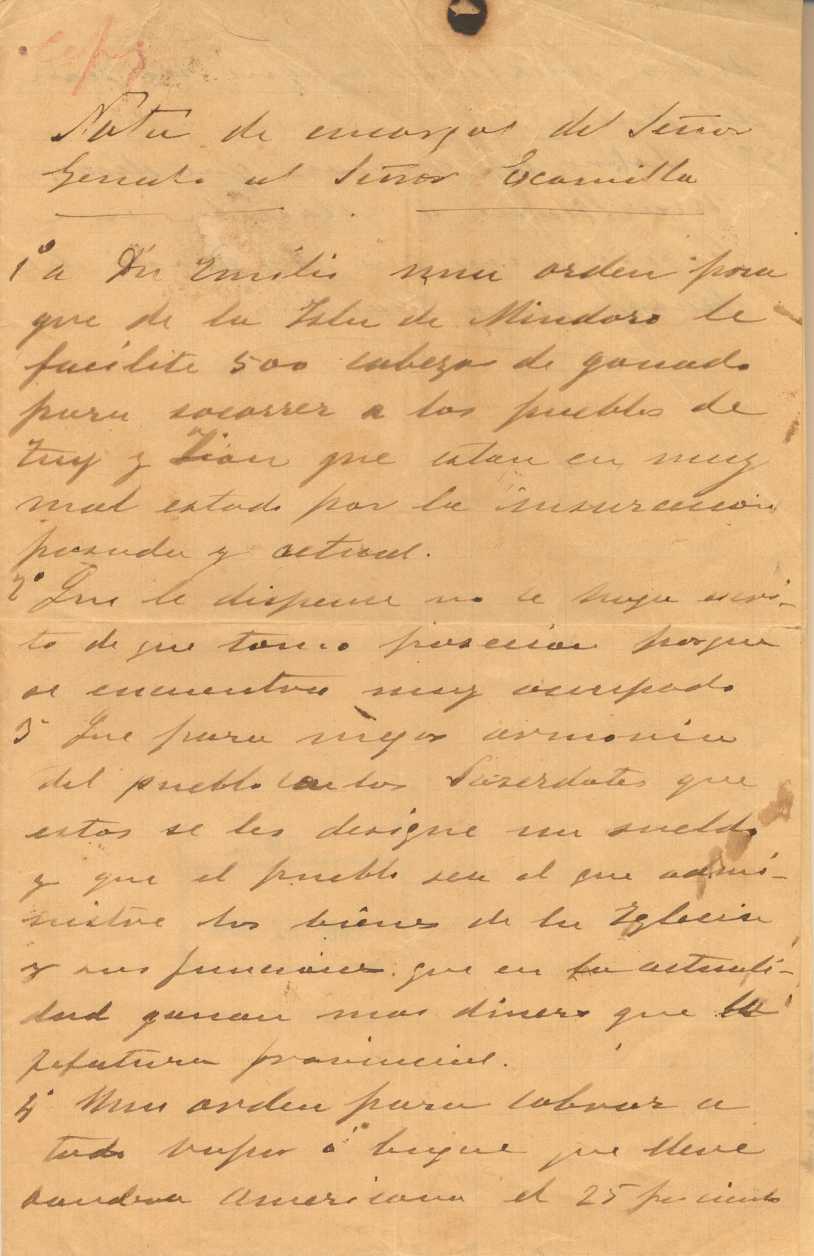 Nota de encargos del Señor
al Señor Escamilla
1º a Dn Emilio una orden para
que de la Isla de Mindoro le
facilite 500 cabezas de ganado
para socorrer a los pueblos de
Tuy y Lian que estan en muy
mal estado por la insureccion
pasada y actual.
2º Que le dispense no se haya escri-
to de que tomo posecion porque
se encuentra muy ocurpado
3 Que para mejor armonia
del pueblo con los Saserdotes que
estos se les designe un sueldo
y que el pueblo sea el que admi-
nistre los bienes de la Iglecia
y sus funciones que en la actuali-
dad ganan mas dinero que la
Jefatura provincial.
4º Una orden para cobrar a
todo vapor ó buque que lleve
bandera americana el 25 por ciento